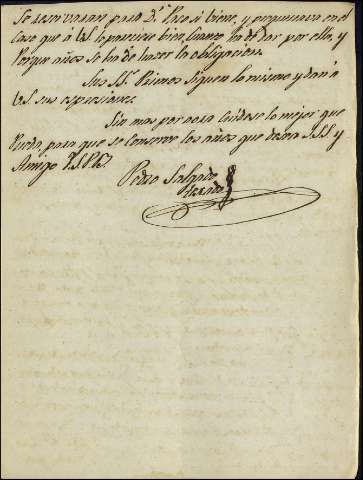 Se reservaran para Dn. Pase si biene, y preguntara en el
Caso que à Vd. le pareciese bien, Cuanto ha de dar por ello, y
Porque años se ha de hacer la obligacion.
Sus SS. Primos Siguen lo mismo y dan à
Vd. sus expresiones.
Sin mas por aora Cuidese lo mejor que
Pueda, para que se Conserve los años que desea S.S.S. y
Amigo
Pedro Salgado